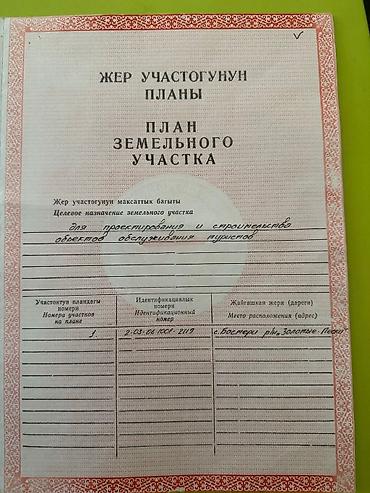 ЖЕР УЧАСТОГУНУН
ПЛАНЫ
ПЛАН
ЗЕМЕЛЬНОГО
УЧАСТКА
Жер участогунун максаттык багыты
Целевое назначение земельного участка
для проектирования и строительства
объектов обслуживания туристов
Участоктун пландагы номери
Номера участков на плане
Идентификациялык номери
Идентификационный номер
Жайгашкан жери (дареги)
Место расположения (адрес)
1 2-03-06-1001-2119 с. Бостери р/н "Золотые Пески